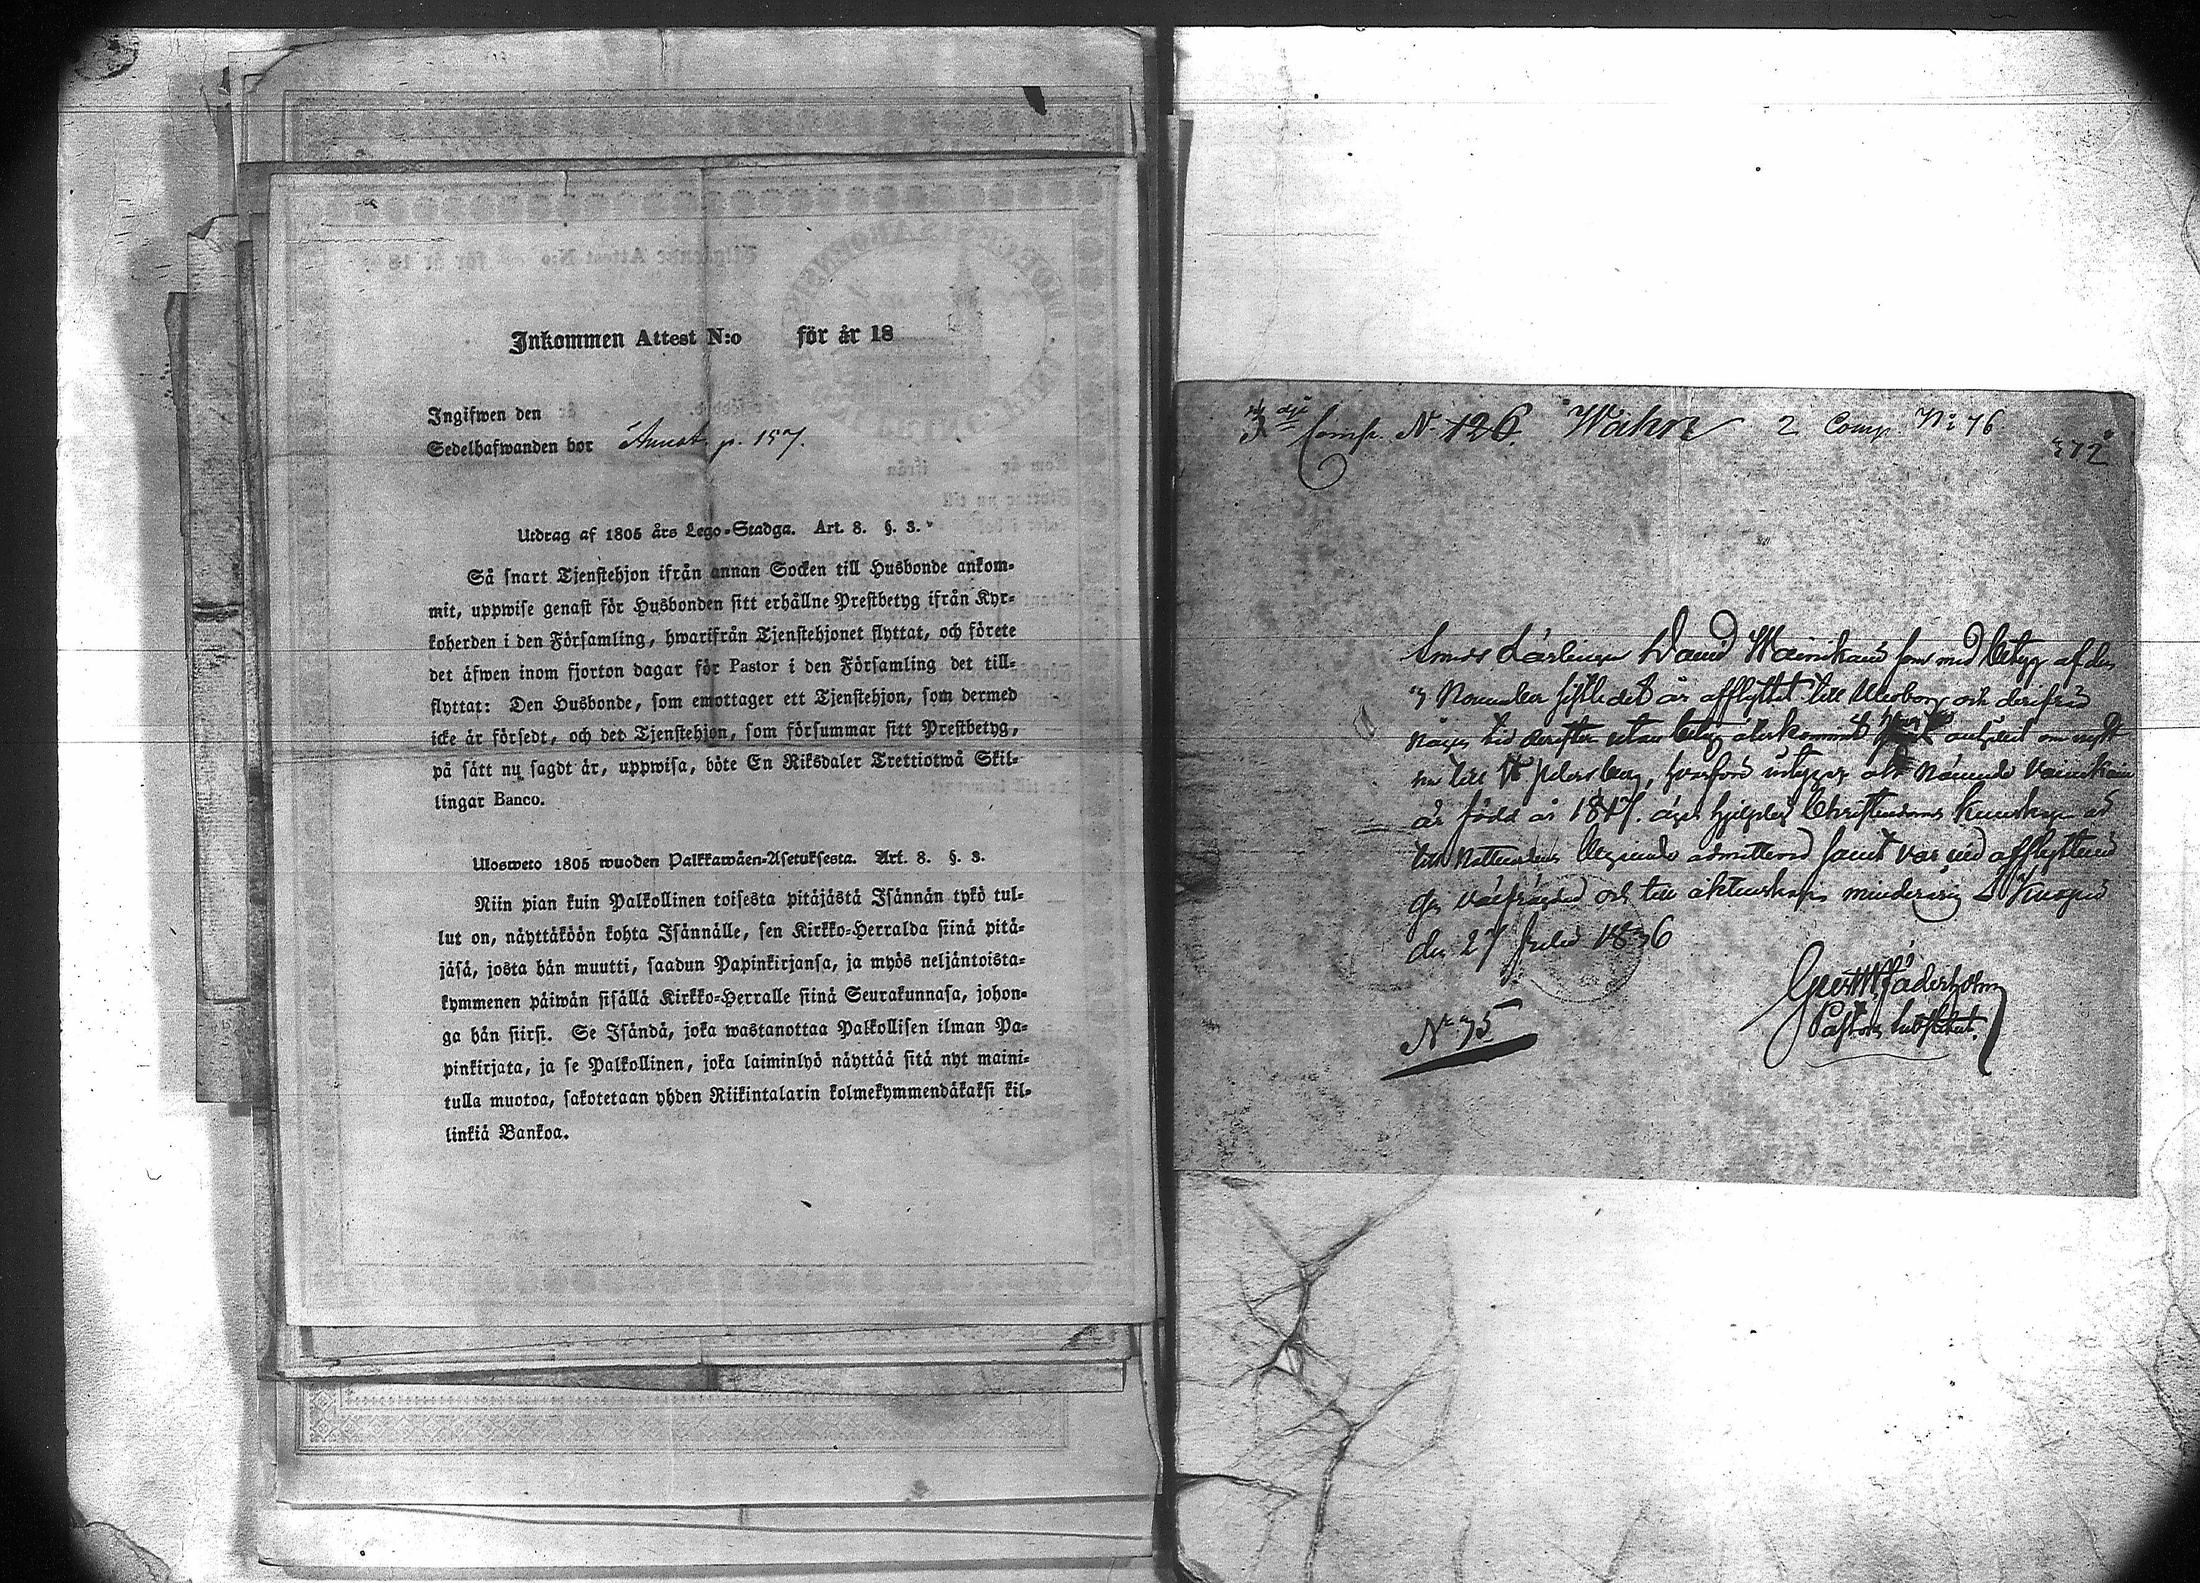 Inkommen Attest N:o för år 18
Ingifwen den
Sedelhafwanden bor Annat p. 157.
Utdrag af 1805 års Lego-Stadga. Art. 8. §. 3.
Så snart Tjenstehjon ifrån annan Socken till Husbonde ankom-
mit, uppwise genast för Husbonden sitt erhållne Prestbetyg ifrån Kyr-
koherden i den Församling, hwarifrån Tjenstehjonet flyttat, och förete
det äfwen inom fjorton dagar för Pastor i den Församling det till-
flyttat: Den Husbonde, som emottager ett Tjenstehjon, som dermed
icke är försedt, och det Tjenstehjon, som försummar sitt Prestbetyg,
på sätt nu sagdt är, uppwisa, böte En Riksdaler Trettiotwå Skil-
lingar Banco.
Ulosweto 1805 wuoden Palkkawäen-Asetuksesta. Art. 8. §. 3.
Niin pian kuin Palkollinen toisesta pitäjästä Isännän tykö tul-
lut on, näyttäköön kohta Isännälle, sen Kirkko-Herralda siinä pitä-
jäsä, josta hän muutti, saadun Papinkirjansa, ja myös neljäntoista-
kymmenen päiwän sisällä Kirkko-Herralle siinä Seurakunnasa, johon-
ga hän siirsi. Se Isändä, joka wastanottaa Palkollisen ilman Pa-
pinkirjata, ja se Palkollinen, joka laiminlyö näyttää sitä nyt maini-
tulla muotoa, sakotetaan yhden Riikintalarin kolmekymmendäkaksi kil-
linkiä Bankoa.
3 dje Comp. N 126. Wahn 2 Comp. N: 76
372
Smeds Lärlingen David Wainikain som med betyg af den
7 November sistledet år afflyttat till Uleåborg och derifrån
någon tid derefter utan betyg återkommit anhållit om
till St petersburg, hvarföre intygas att Nämnde Vainikain
är född år 1817. äger hjelplig Christendoms kunskap är
till Nattvardens begående admitterad samt var vid afflyttnin
gen välfrägdad och till äktenskap minderårig Kuopio
den 27 Julii 1836
N:o 75
Gust W Fäderholm
Pastors Substitut.